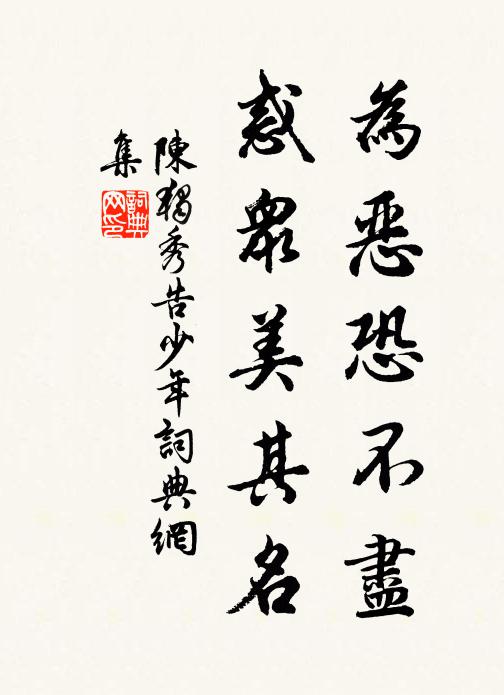 為惡恐不盡
惑眾美其名
陳獨秀告少年詞典網
集
詞典
网印